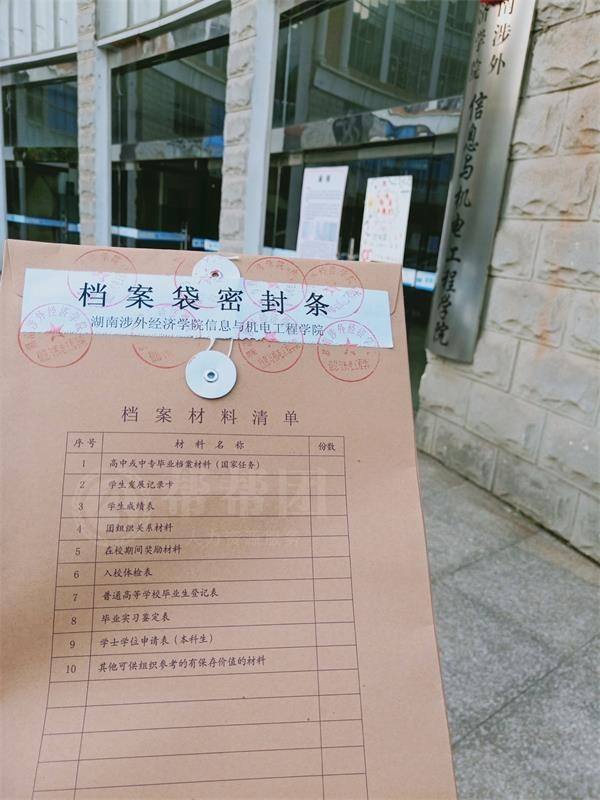 南涉外
济学院 信息与机电工程学院
档案袋密封条
湖南涉外经济学院信息与机电工程学院
档案材料清单
序号 材料名称 份数
1 高中或中专毕业档案材料（国家任务）
2 学生发展记录卡
3 学生成绩表
4 团组织关系材料
5 在校期间奖励材料
6 入校体检表
7 普通高等学校毕业生登记表
8 毕业实习鉴定表
9 学士学位申请表（本科生）
10 其他可供组织参考的有保存价值的材料
帮帮团